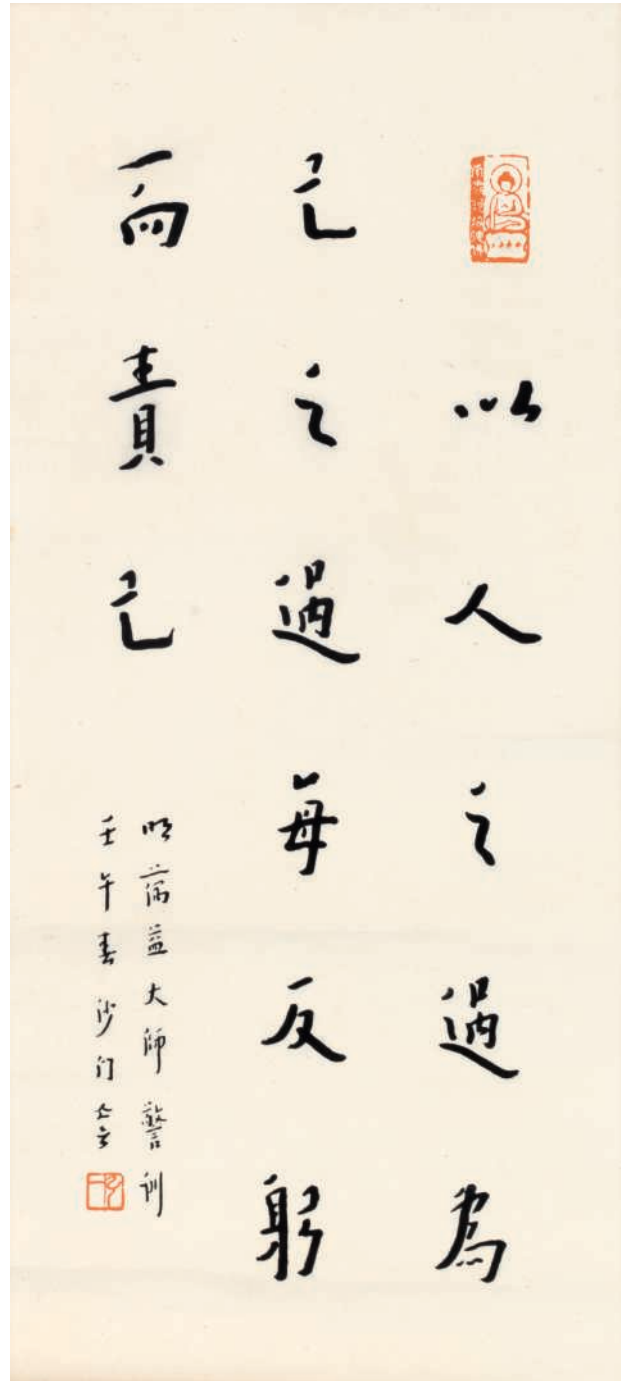 以人之過為
己之過每反躬
而責己
明蕅益大師警訓
壬午春沙门